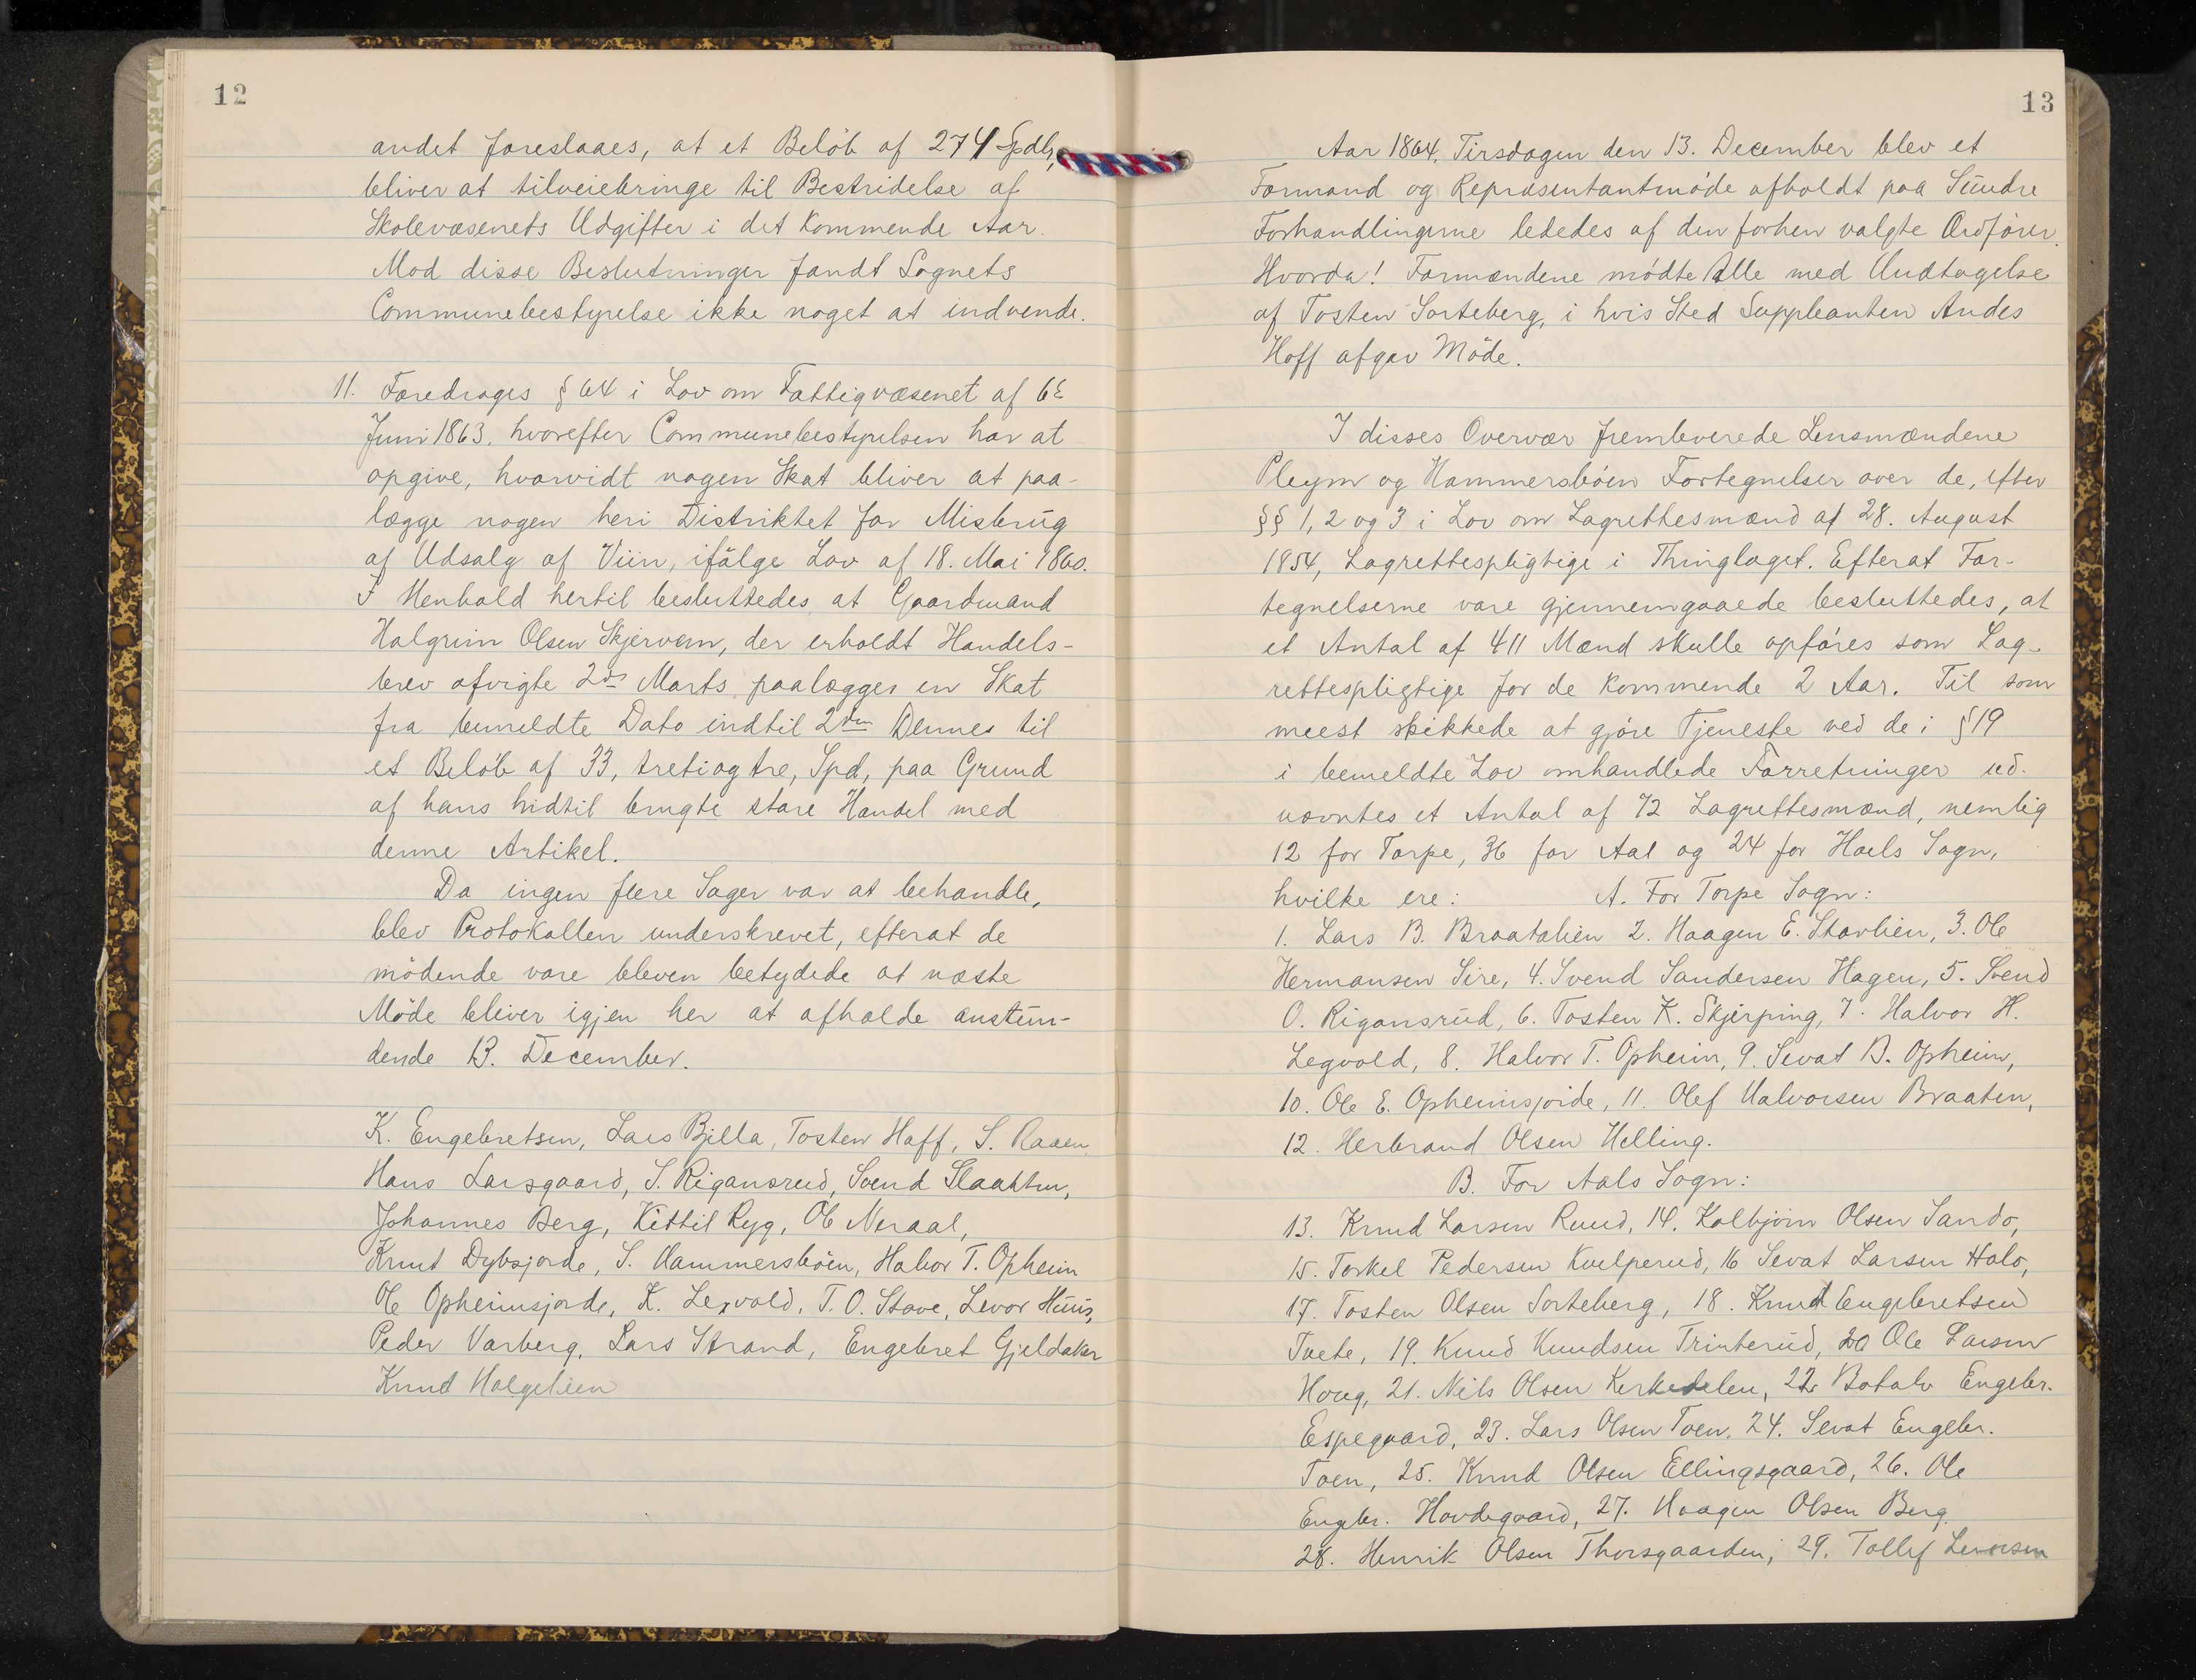 12
andet foreslaaes, at et Beløb af 274 Spdlr,
bliver at tilveiebringe til Bestridelse af
Skolevæsenets Udgifter i det kommende Aar.
Mod disse Beslutninger fandt Sognets
Communebestyrelse ikke noget at indvende.
11. Foredroges § 64 i Lov om Fattigvæsenet af 6te
Juni 1863, hvorefter Communebestyrelsen har at
opgive, hvorvidt nogen Skat bliver at paa-
lægge nogen heri Distriktet for Misbrug
af Udsalg af Viin, ifølge Lov af 18. Mai 1860.
I Henhold hertil besluttedes, at Gaardmand
Halgrim Olsen Skjervem, der erholdt Handels-
brev afvigte 2den Marts, paalægges en Skat
fra bemeldte Dato indtil 2den Dennes til
et Beløb af 33, tretiogtre, Spd, paa Grund
af hans hidtil brugte store Handel med
denne Artikel.
Da ingen flere Sager var at behandle,
blev Protokollen underskrevet, efterat de
mødende vare bleven betydede at næste
Møde bliver igjen her at afholde anstun-
dende 13. December.
K. Engebretsen, Lars Bjella, Tosten Hoff, S. Raaen
Hans Larsgaard, S. Rigansrud, Svend Slaatten,
Johannes Berg, Kittil Ryg, Ole Neraal,
Knut Dybsjorde, S. Hammersbøen, Halvor T. Opheim
Ole Opheimsjorde, K. Legvold, T. O. Stave, Levor Huus,
Peder Varberg, Lars Strand, Engebret Gjeldaker
Knud Holgelien
13
Aar 1864, Tirsdagen den 13. December blev et
Formand og Repræsentantmøde afholdt paa Sundre
Forhandlingerne lededes af den forhen valgte Ordfører.
Hvorda! Formændene mødte Alle med Undtagelse
af Tosten Sorteberg, i hvis Sted Suppleanten Andes
Hoff afgav Møde.
I disses Overvær fremleverede Lensmændene
Pleym og Hammersbøen Fortegnelser over de, efter
§§ 1, 2 og 3 i Lov om Lagrettesmænd af 28. August
1854, Lagrettespligtige i Thinglaget. Efterat For-
tegnelserne vare gjennemgaaede besluttedes, at
et Antal af 411 Mænd skulle opføres som Lag-
rettespligtige for de kommende 2 Aar. Til som
meest skikkede at gjøre Tjeneste ved de i § 19
i bemeldte Lov omhandlede Forretninger ud-
nævntes et Antal af 72 Lagrettesmænd, nemlig
12 for Torpe, 36 for Aal og 24 for Hols Sogn,
hvilke ere: A. For Torpe Sogn:
1. Lars B. Braatalien 2. Haagen E. Stavlien, 3. Ole
Hermansen Sire, 4. Svend Sandersen Hagen, 5. Svend
O. Rigansrud, 6. Tosten K. Skjerping, 7. Halvor H.
Legvold, 8. Halvor T. Opheim, 9. Sevat B. Opheim,
10. Ole E. Opheimsjoide, 11. Olef Halvorsen Braaten,
12. Herbrand Olsen Helling.
B. For Aals Sogn:
13. Knud Larsen Ruud, 14. Kolbjørn Olsen Sando,
15. Torkel Pedersen Kvelprud, 16 Sevat Larsen Holo,
17. Tosten Olsen Sorteberg, 18. Knud Engebretsen
Tvete, 19. Knud Knudsen Trinterud, 20 Ole Larsen
Houg, 21. Nils Olsen Kirkedelen, 22 Botolv Engebr.
Espegaard, 23. Lars Olsen Toen, 24. Sevat Engebr.
Toen, 25. Knud Olsen Ellingsgaard, 26. Ole
Engebr. Hovdegaard, 27. Haagen Olsen Berg
28. Henrik Olsen Thorsgaarden, 29. Tollef Levorsen